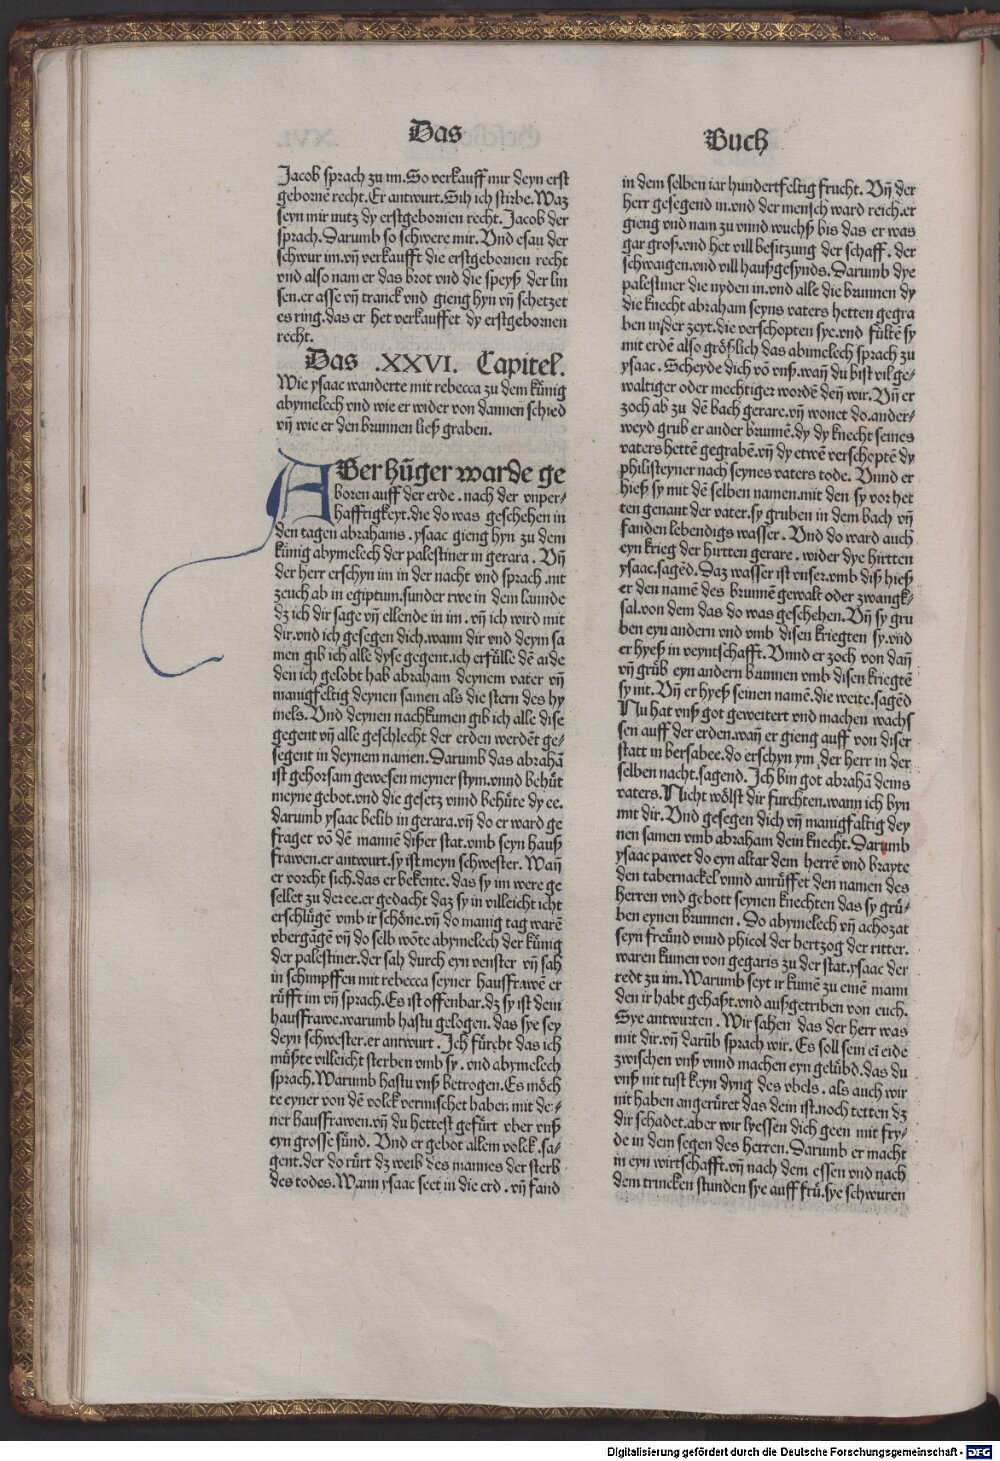 Das
Buch
Jacob sprach zu im. So verkauff mir deyn erst
geborne recht. Er antwurt. Sih ich stirbe. Waz
seyn mir nutz dy erstgebornen recht. Jacob der
sprach. Darumb so schwere mir. Und esau der
schwur im. vñ verkaufft die erstgebornen recht
vnd also nam er das brot vnd die speyß der lin
sen. er asse vñ tranck vnd gieng hyn vñ schetzet
es ring. das er het verkauffet dy erstgebornen
recht.
Das .XXVI. Capitel.
Wie ysaac wanderte mit rebecca zu dem künig
abymelech vnd wie er wider von dannen schied
vñ wie er den brunnen ließ graben.
ABer hũger warde ge
boren auff der erde. nach der vnper⸗
hafftigkeyt. die do was geschehen in
den tagen abrahams. ysaac gieng hyn zu dem
künig abymelech der palestiner in gerara. Vñ
der herr erschyn im in der nacht vnd sprach. nit
zeuch ab in egiptum. sunder rwe in dem lannde
dz ich dir sage vñ ellende in im. vñ ich wird mit
dir. vnd ich gesegen dich. wann dir vnd deym sa
men gib ich alle dyse gegent. ich erfülle dẽ aide
den ich gelobt hab abraham deynem vater vñ
manigfeltig deynen samen als die stern des hy
mels. Und deynen nachkumen gib ich alle dise
gegent vñ alle geschlecht der erden werdẽt ge⸗
segent in deynem namen. Darumb das abrahã
ist gehorsam gewesen meyner stym. vnnd behüt
meyne gebot. vnd die gesetz vnnd behüte dy ee.
darumb ysaac belib in gerara. vñ do er ward ge
fraget võ dẽ mannẽ diser stat. vmb seyn hauß
frawen. er antwurt. sy ist meyn schwester. Wañ
er vorcht sich. das er bekente. das sy im were ge
sellet zu der ee. er gedacht daz sy in villeicht icht
erschlügẽ vmb ir schöne. vñ do manig tag warẽ
vbergãgẽ vñ do selb wõte abymelech der künig
der palestiner. der sah durch eyn venster vñ sah
in schimpffen mit rebecca seyner haussfrawẽ er
rüfft im vñ sprach. Es ist offenbar. dz sy ist dein
haussfrawe. warumb hastu gelogen. das sye sey
deyn schwester. er antwurt. Ich fürcht das ich
müßte villeicht sterben vmb sy. vnd abymelech
sprach. Warumb hastu vnß betrogen. Es möch
te eyner von dẽ volck vermischet haben mit de⸗
ner haussfrawen. vñ du hettest gefürt vber vnß
eyn grosse sünd. Und er gebot allem volck. sa⸗
gent. der do rürt dz weib des mannes der sterb
des todes. Wann ysaac seet in die erd. vñ fand
in dem selben iar hundertfeltig frucht. Vñ der
herr gesegend in. vnd der mensch ward reich. er
gieng vnd nam zu vnnd wuchß bis das er was
gar groß. vnd het vill besitzung der schaff. der
schwaigen. vnd vill haußgesynds. Darumb dye
palestiner die nyden in. vnd alle die brunnen dy
die knecht abraham seyns vaters hetten gegra
ben in der zeyt. die verschopten sye. vnd fültẽ sy
mit erdẽ also größlich das abimelech sprach zu
ysaac. Scheyde dich võ vnß. wañ du bist vil ge⸗
waltiger oder mechtiger wordẽ deñ wir. Vñ er
zoch ab zu dẽ bach gerare. vñ wonet do. ander⸗
weyd grub er ander brunnẽ. dy dy knecht seines
vaters hettẽ gegrabẽ. vñ dy etwẽ verschoptẽ dy
philisteyner nach seynes vaters tode. Vnnd er
hieß sy mit dẽ selben namen. mit den sy vor het
ten genant der vater. sy gruben in dem bach vñ
fanden lebendigs wasser. Und do ward auch
eyn krieg der hirtten gerare. wider dye hirtten
ysaac. sagẽd. Daz wasser ist vnser. vmb diß hieß
er den namẽ des brunnẽ gewalt oder zwangk⸗
sal. von dem das do was geschehen. Vñ sy gru
ben eyn andern vnd vmb disen kriegten sy. vnd
er hyeß in veyntschafft. Vnnd er zoch von dañ
vñ grüb eyn andern brunnen vmb disen kriegtẽ
sy nit. Vñ er hyeß seinen namẽ. die weite. sagẽd
Nu hat vnß got geweitert vnd machen wachs
sen auff der erden. wañ er gieng auff von diser
statt in bersabee. do erschyn ym der herr in der
selben nacht. sagend. Ich bin got abrahã deins
vaters. Nicht wölst dir furchten. wann ich byn
mit dir. Und gesegen dich vñ manigfaltig dey
nen samen vmb abraham dein knecht. Darumb
ysaac pawet do eyn altar dem herrẽ vnd brayte
den tabernackel vnnd anrüffet den namen des
herren vnd gebott seynen knechten das sy grü⸗
ben eynen brunnen. Do abymelech vñ achozat
seyn freünd vnnd phicol der hertzog der ritter.
waren kumen von gegaris zu der stat. ysaac der
redt zu im. Warumb seyt ir kumẽ zu einẽ mann
den ir habt gehaßt. vnd außgetriben von euch.
Sye antwurten. Wir sahen das der herr was
mit dir. vñ darüb sprach wir. Es soll sein eĩ eide
zwischen vnß vnnd machen eyn gelübd. das du
vnß nit tust keyn dyng des vbels. als auch wir
nit haben angerüret das dein ist. noch tetten dz
dir schadet. aber wir lyessen dich geen mit fry⸗
de in dem segen des herren. Darumb er macht
in eyn wirtschafft. vñ nach dem essen vnd nach
dem trincken stunden sye auff frü. sye schwuren
Digitalisierung gefördert durch die Deutsche Forschungsgemeinschaft - DFG